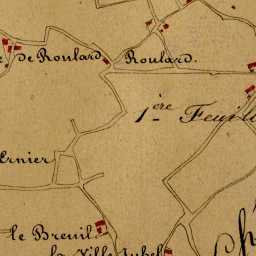 de Roulard Roulard.
1.ère Feuill
ernier
le Breuil
la Ville Jubel